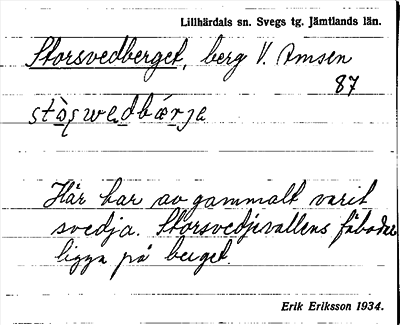 Lillhärdals sn. Svegs tg. Jämtlands län.
Storsvedberget, berg V. Amsen
87
stò̩ʂwedbǽrje
Här har av gammalt varit
svedja. Storsvedjevallens fäbodar
ligga på berget.
Erik Eriksson 1934.